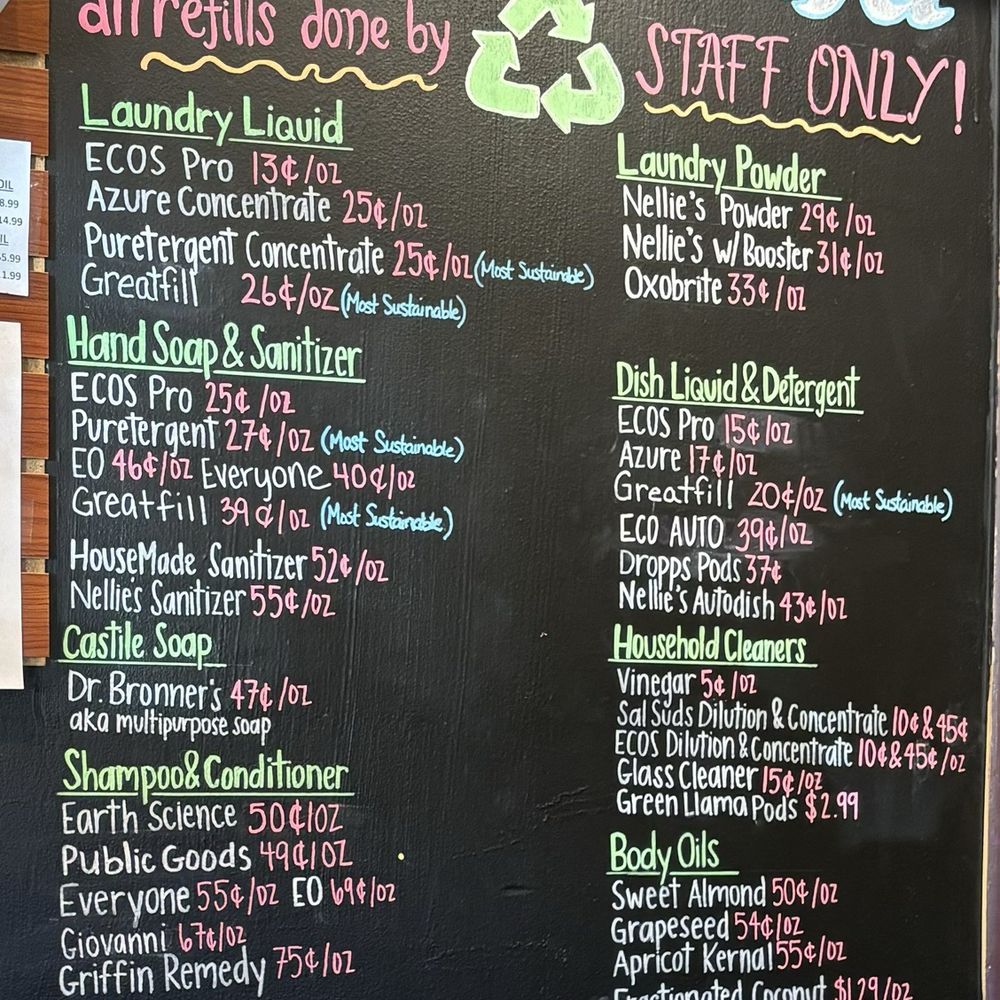 all refills done by
STAFF ONLY!
Laundry Liquid
ECOS Pro 13¢/oz
Azure Concentrate 25¢/oz
Puretergent Concentrate 25¢/oz (Most Sustainable)
Greatfill 26¢/oz (Most Sustainable)
Hand Soap & Sanitizer
ECOS Pro 25¢/oz
Puretergent 27¢/oz (Most Sustainable)
EO 46¢/oz Everyone 40¢/oz
Greatfill 39¢/oz (Most Sustainable)
HouseMade Sanitizer 52¢/oz
Nellie's Sanitizer 55¢/oz
Castile Soap
Dr. Bronner's 47¢/oz
aka multipurpose soap
Shampoo & Conditioner
Earth Science 50¢/oz
Public Goods 49¢/oz
Everyone 55¢/oz EO 69¢/oz
Giovanni 67¢/oz
Griffin Remedy 75¢/oz
Laundry Powder
Nellie's Powder 29¢/oz
Nellie's w/ Booster 31¢/oz
Oxobrite 33¢/oz
Dish Liquid & Detergent
ECOS Pro 15¢/oz
Azure 17¢/oz
Greatfill 20¢/oz (Most Sustainable)
ECO AUTO 39¢/oz
Dropps Pods 37¢
Nellie's Autodish 43¢/oz
Household Cleaners
Vinegar 5¢/oz
Sal Suds Dilution & Concentrate 10¢ & 45¢
ECOS Dilution & Concentrate 10¢ & 45¢/oz
Glass Cleaner 15¢/oz
Green Llama Pods $2.99
Body Oils
Sweet Almond 50¢/oz
Grapeseed 54¢/oz
Apricot Kernal 55¢/oz
Fractionated Coconut $1.29/oz